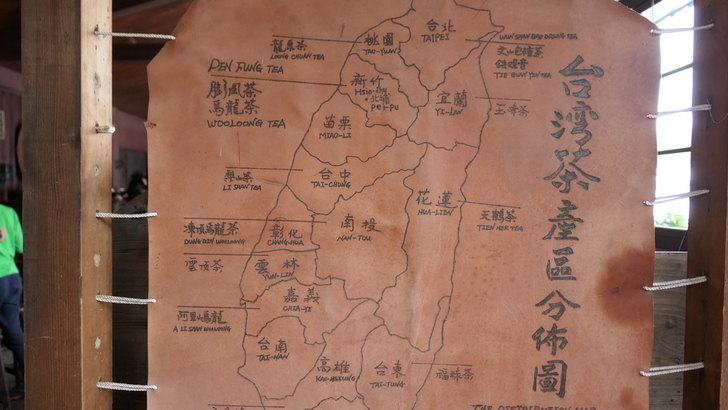 台灣茶產區分佈圖
台北
TAIPEI
桃園
TAO-YUAN
龍泉茶
LOONG CHUAN TEA
文山包種茶
鐵觀音
TIE GUAN YIN TEA
PEN FUNG TEA
膨風茶
烏龍茶
WOOLOONG TEA
新竹
Hsin-ing
北埔
pei-pu
宜蘭
YI-LAN
玉峰茶
苗栗
MIAO-LI
梨山茶
LI SHAN TEA
台中
TAI-CHUNG
花蓮
HUA-LIEN
天鶴茶
TIEN HER TEA
凍頂烏龍茶
DUNG DEN WOOLONG
彰化
CHANG-HUA
南投
NAN-TOU
雲頂茶
雲林
YUN-LIN
嘉義
CHIA-YI
阿里山烏龍
A LI SHAN WOOLONG
台南
TAI-NAN
高雄
KAO-HSIUNG
台東
TAI-TUNG
福祿茶